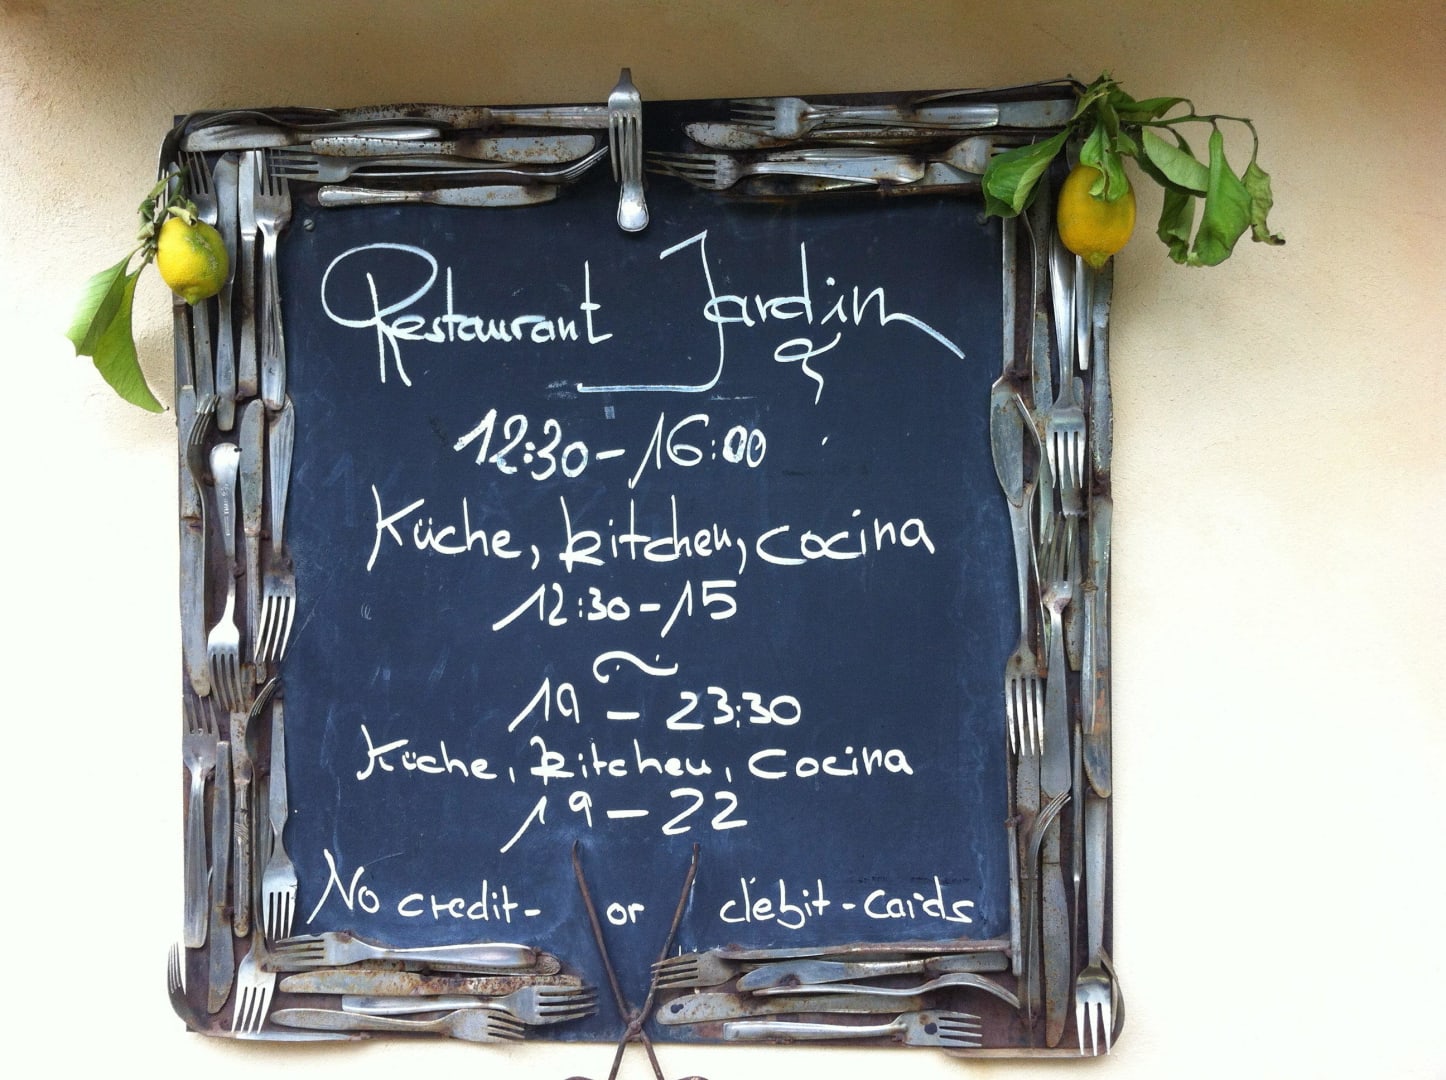 Restaurant Jardin
12:30-16:00
Küche, kitchen, cocina
12:30-15
19 - 23:30
Küche, kitchen, cocina
19 - 22
No credit- or débit-cards